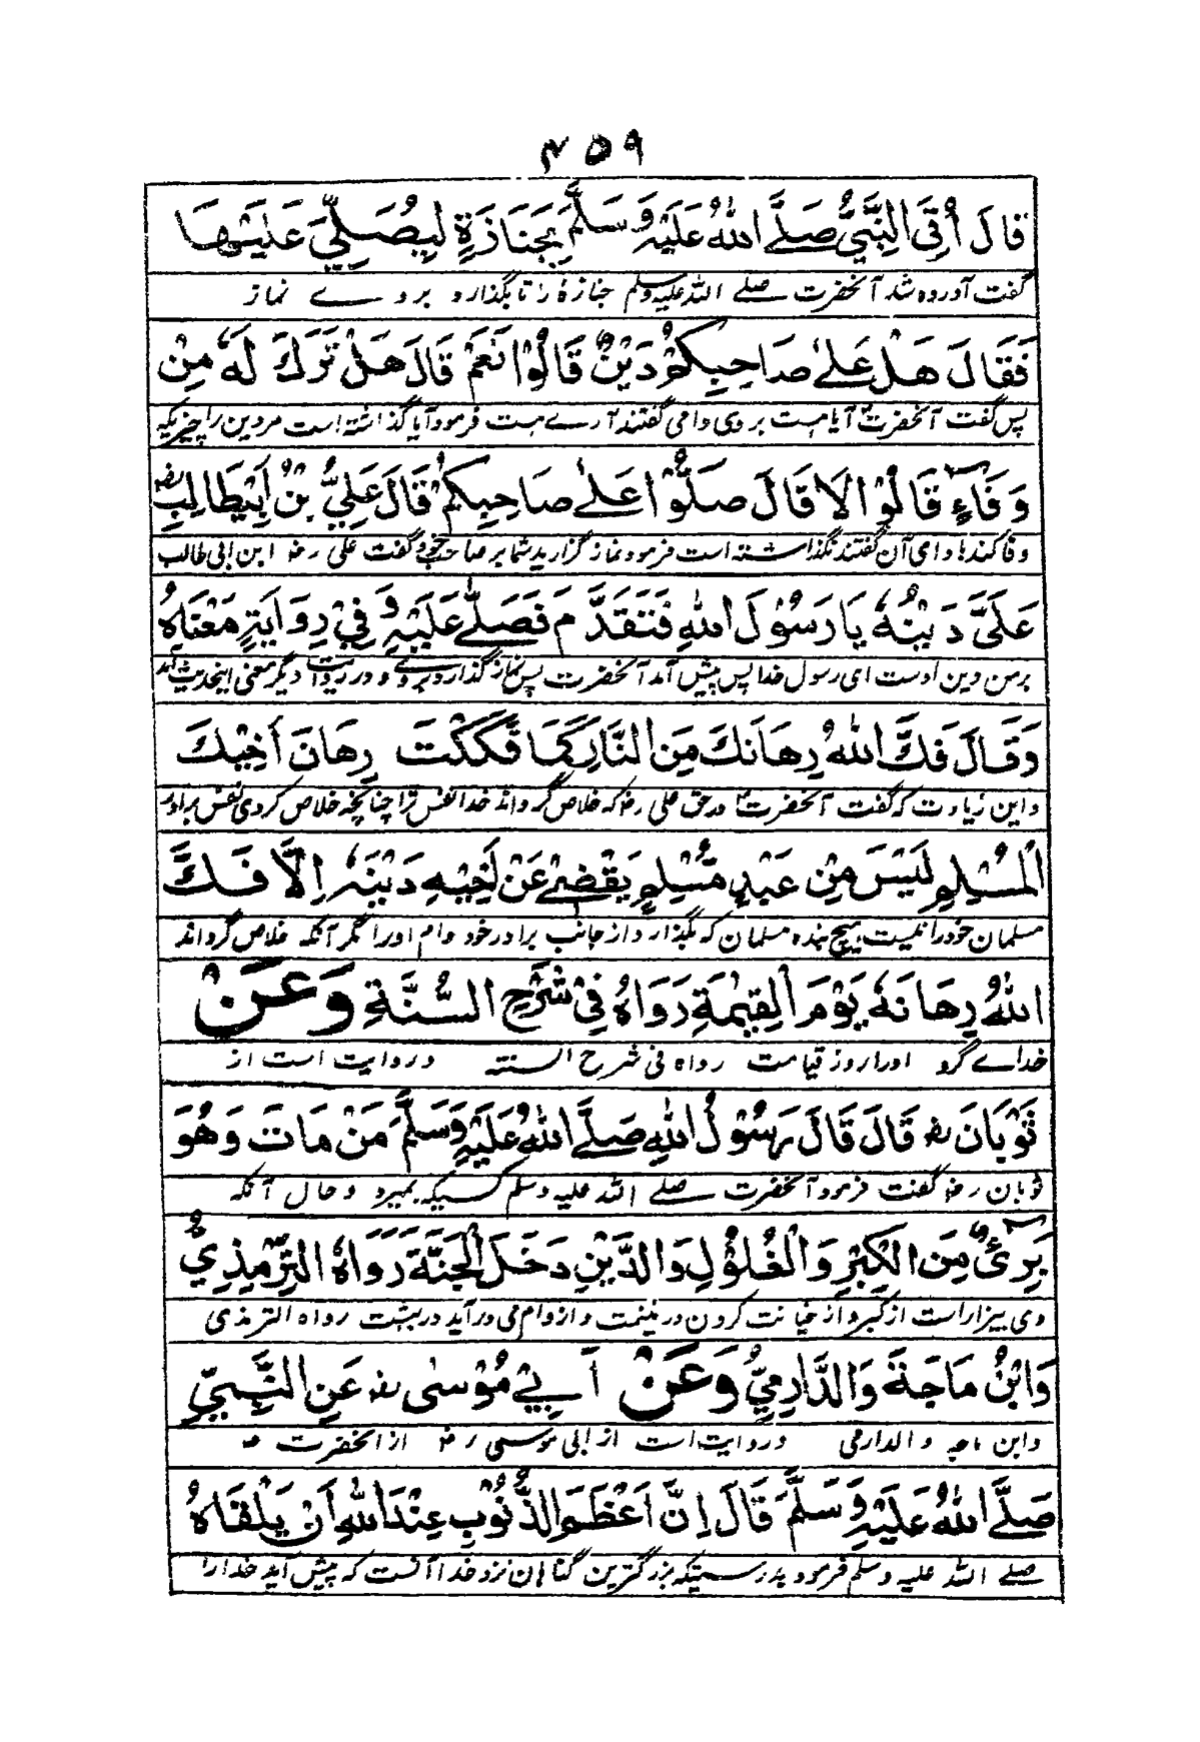 ۴۵۹
قَالَ أُتِيَ النَّبِيُّ صَلَّے اللهُ عَلَيْهِ وَسَلَّمَ بِجَنَازَةٍ لِيُصَلِّيَ عَلَيْهَا
گفت آورده شد آنحضرت صلے اللہ علیہ وسلم جنازۂ را تا بگذارد بر وے نماز
فَقَالَ هَلْ عَلٰے صَاحِبِكُمْ دَيْنٌ قَالُوْا نَعَمْ قَالَ هَلْ تَرَكَ لَهٗ مِنْ
پس گفت آنحضرت آیا ہست بر وی وامی گفتند آرے ہست فرمود آیا گذاشتہ است مر دین را چیزیکہ
وَفَاءٍ قَالُوْا لَا قَالَ صَلُّوْا عَلٰے صَاحِبِكُمْ قَالَ عَلِيُّ بْنُ اَبِيْطَالِبٍ رض
وفا کند ادای آن گفتند نگذاشتہ است فرمود نماز گزارید شما بر صاحب خود گفت علی رض ابن ابی طالب
عَلَيَّ دَيْنُهٗ يَا رَسُوْلَ اللهِ فَتَقَدَّمَ فَصَلّٰے عَلَيْهِ وَفِيْ رِوَايَةٍ مَعْنَاهُ
بر من دین اوست ای رسول خدا پس پیش آمد آنحضرت پس نماز گذارد بر وے و در روایت دیگر معنی اینحدیث آمد
وَقَالَ فَكَّ اللهُ رِهَانَكَ مِنَ النَّارِ كَمَا فَكَكْتَ رِهَانَ أَخِيْكَ
و این زیادت کہ گفت آنحضرت در حق علی رض کہ خلاص گرداند خدا نفس ترا چنانچہ خلاص کردی نفس برادر
الْمُسْلِمِ لَيْسَ مِنْ عَبْدٍ مُّسْلِمٍ يَقْضِيْ عَنْ أَخِيْهِ دَيْنَهٗ اِلَّا فَكَّ
مسلمان خود را نیست ہیچ بندہ مسلمان کہ بگذارد از جانب برادر خود وام او را مگر آنکہ خلاص گرداند
اللهُ رِهَانَهٗ يَوْمَ الْقِيٰمَةِ رَوَاهُ فِيْ شَرْحِ السُّنَّةِ وَعَنْ
خداے گرو او را روز قیامت رواہ فی شرح السنتہ و روایت است از
ثَوْبَانَ رض قَالَ قَالَ رَسُوْلُ اللهِ صَلَّے اللهُ عَلَيْهِ وَسَلَّمَ مَنْ مَاتَ وَهُوَ
ثوبان رض گفت فرمود آنحضرت صلے اللہ علیہ وسلم کسیکہ بمیرد و حال آنکہ
بَرِئٌ مِنَ الْكِبْرِ وَالْغُلُوْلِ وَالدَّيْنِ دَخَلَ الْجَنَّةَ رَوَاهُ التِّرْمِذِيُّ
وی بیزار است از کبر و از خیانت کردن در غنیمت و از وام می در آید در بہشت رواہ الترمذی
وَابْنُ مَاجَةَ وَالدَّارِمِيُّ وَعَنْ أَبِيْ مُوْسٰى رض عَنِ النَّبِيِّ
و ابن ماجہ و الدارمی و روایت است از ابی موسی رض از آنحضرت ص
صَلَّے اللهُ عَلَيْهِ وَسَلَّمَ قَالَ اِنَّ اَعْظَمَ الذُّنُوْبِ عِنْدَ اللهِ اَنْ يَلْقَاهُ
صلے اللہ علیہ وسلم فرمود بدرستیکہ بزرگترین گناہان نزد خدا آنست کہ پیش آید خدا را